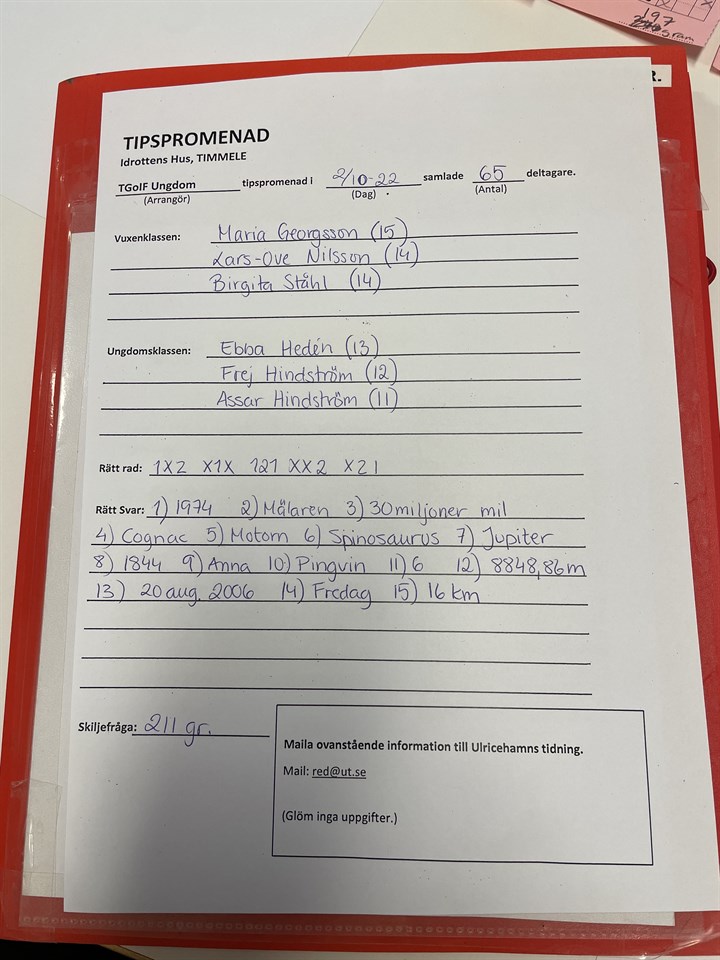 197
gram
R.
TIPSPROMENAD
Idrottens Hus, TIMMELE
TGoIF Ungdom tipspromenad i 2/10-22 samlade 65 deltagare.
(Arrangör) (Dag) (Antal)
Vuxenklassen: Maria Georgsson (15)
Lars-Ove Nilsson (14)
Birgita Ståhl (14)
Ungdomsklassen: Ebba Hedén (13)
Frej Hindström (12)
Assar Hindström (11)
Rätt rad: 1X2 X1X 121 XX2 X21
Rätt Svar: 1) 1974 2) Mälaren 3) 30 miljoner mil
4) Cognac 5) Motorn 6) Spinosaurus 7) Jupiter
8) 1844 9) Anna 10) Pingvin 11) 6 12) 8848,86m
13) 20 aug. 2006 14) Fredag 15) 16 km
Skiljefråga: 211 gr.
Maila ovanstående information till Ulricehamns tidning.
Mail: red@ut.se
(Glöm inga uppgifter.)